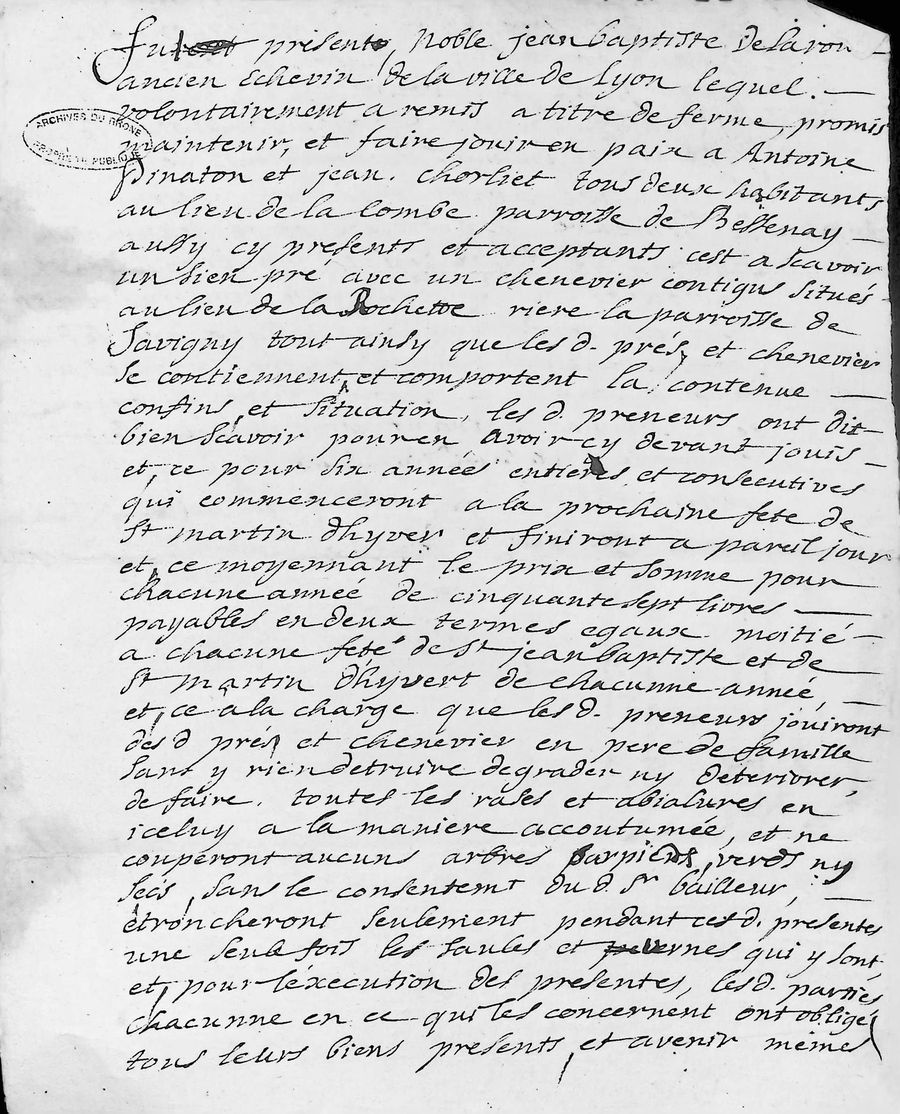 Fut present, Noble jean baptiste Delaron
ancien Echevin de la ville de Lyon lequel.
volontairement a remis a titre de ferme, promis
ARCHIVES DU RHONE
PROPRIÉTÉ PUBLIQUE
maintenir, et faire jouir en paix a Antoine
Pinaton et jean. Chorliet tous deux habitants
au lieu de la Combe parroisse de Bessenay
aussy cy presents et acceptants cest a scavoir
un sien pré avec un chenevier contigus situés
au lieu de la Rochette riere la parroisse de
Savigny tout ainsy que les d. prés, et chenevier
se contiennent, et comportent la contenue
confins, et situation, les d. preneurs ont dit
bien scavoir pour en avoir cy devant jouis
et, ce pour six années entieres et consecutives
qui commenceront a la prochaine fete de
St martin dhyver et finiront a pareil jour
et, ce moyennant le prix et somme pour
chacune année de cinquante sept livres
payables en deux termes egaux moitié
a chacune feté de St jean baptiste et de
St martin dhyvert de chacunne année
et, ce a la charge que les d. preneurs jouiront
des d prés et chenevier en pere de famille
sans y rien detruire degrader ny deteriorer,
de faire. toutes les rases et abialures en
iceluy a la maniere accoutumée, et ne
couperont aucuns arbres parpieds, verds ny
secs, sans le consentemt du d. Sr bailleur,
etroncheront seulement pendant ces d. presentes
une seule fois les saules et vernes qui y sont,
et, pour l'éxecution des presentes, les d. parties
chacunne en ce qui les concernent ont obligé
tous leurs biens presents, et avenir mêmes